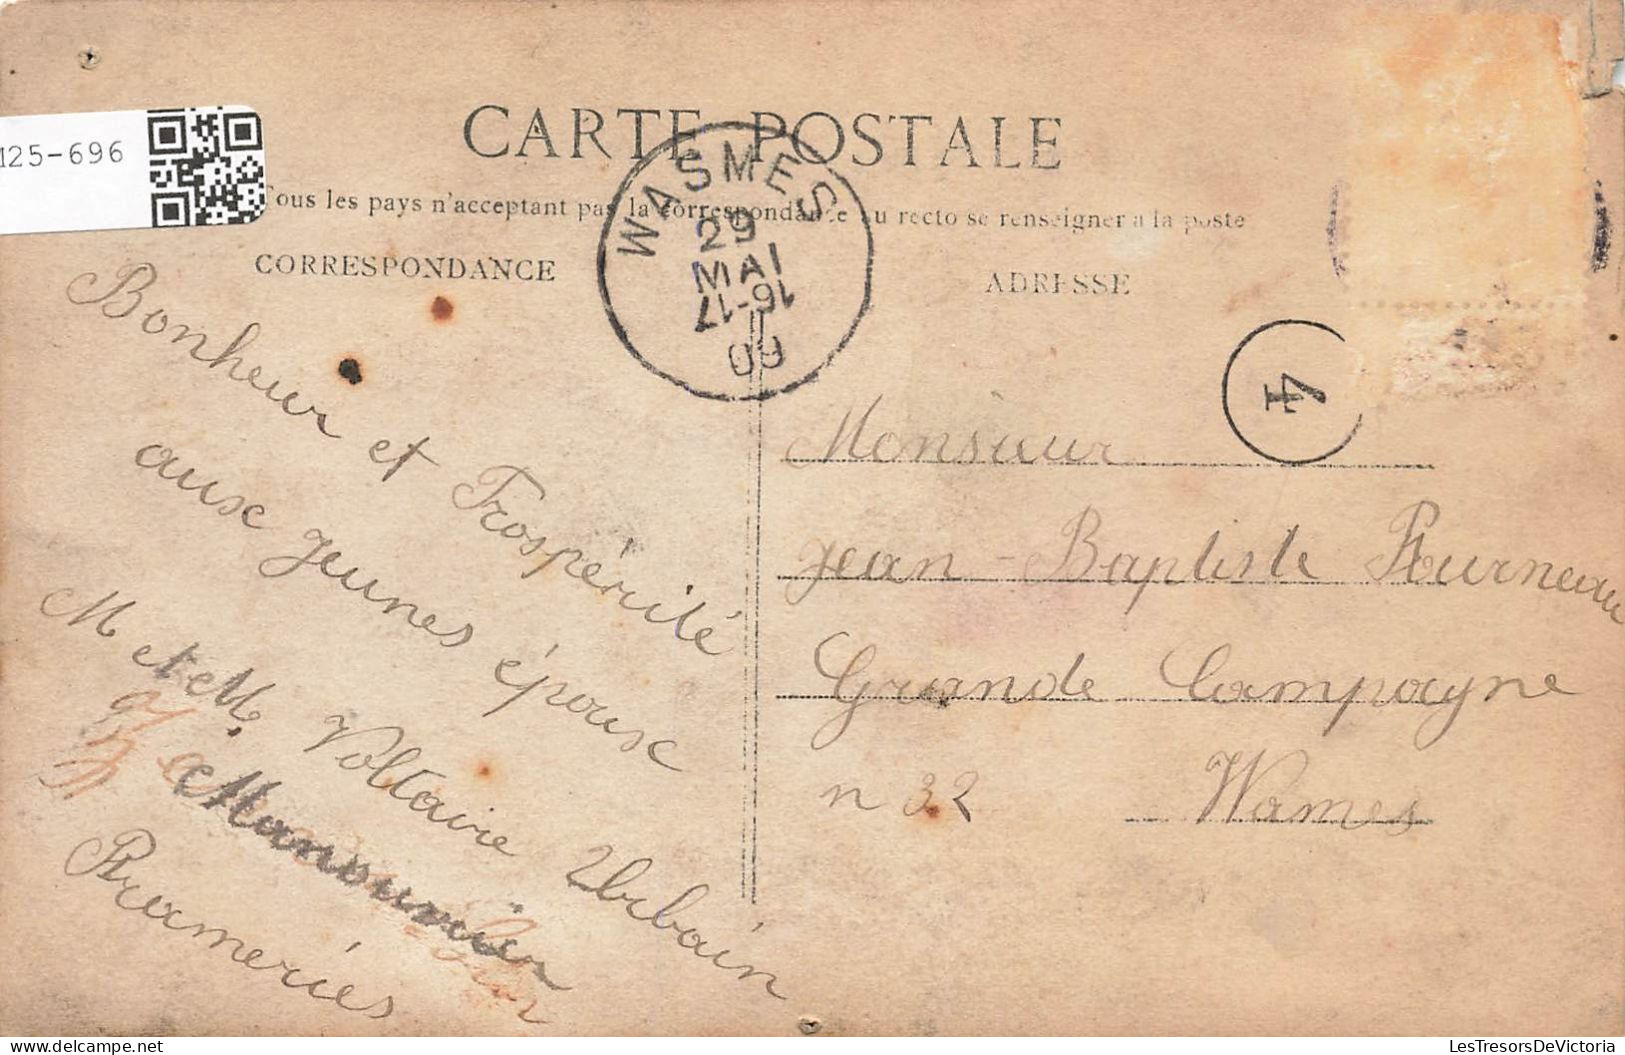 125-696
CARTE POSTALE
Tous les pays n'acceptant pas la correspondance au recto se renseigner a la poste
CORRESPONDANCE
ADRESSE
WASMES
29
MAI
16-17
4
Bonheur et Prospérité
aux jeunes époux
M et M. Voltaire Urbain
Manounier
Frameries
Monsieur
Jean-Baptiste Fourneau
Grande Campagne
n 32 Wames
delcampe.net
LesTresorsDeVictoria